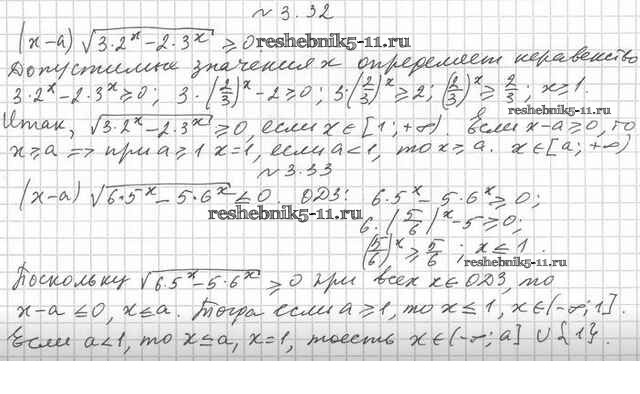 №3.32
(x-a)√(3·2^x-2·3^x) ≥ 0 reshebnik5-11.ru
Допустимые значения x определяет неравенство
3·2^x-2·3^x≥0; 3·(2/3)^x-2≥0; 3·(2/3)^x≥2; (2/3)^x≥2/3; x≥1.
reshebnik5-11.ru
Итак, √(3·2^x-2·3^x)≥0, если x∈[1;+∞). Если x-a≥0, то
x≥a => при a≥1 x=1, если a<1, то x≥a. x∈[a;+∞)
№3.33
(x-a)√(6·5^x-5·6^x)≤0. ОДЗ: 6·5^x-5·6^x≥0;
reshebnik5-11.ru
6·(5/6)^x-5≥0;
(5/6)^x≥5/6; x≤1.
reshebnik5-11.ru
Поскольку √(6·5^x-5·6^x)≥0 при всех x∈ОДЗ, то
x-a≤0, x≤a. Тогда если a≥1, то x≤1, x∈(-∞;1].
Если a<1, то x≤a, x=1, тоесть x∈(-∞;a]∪{1}.
reshebnik5-11.ru